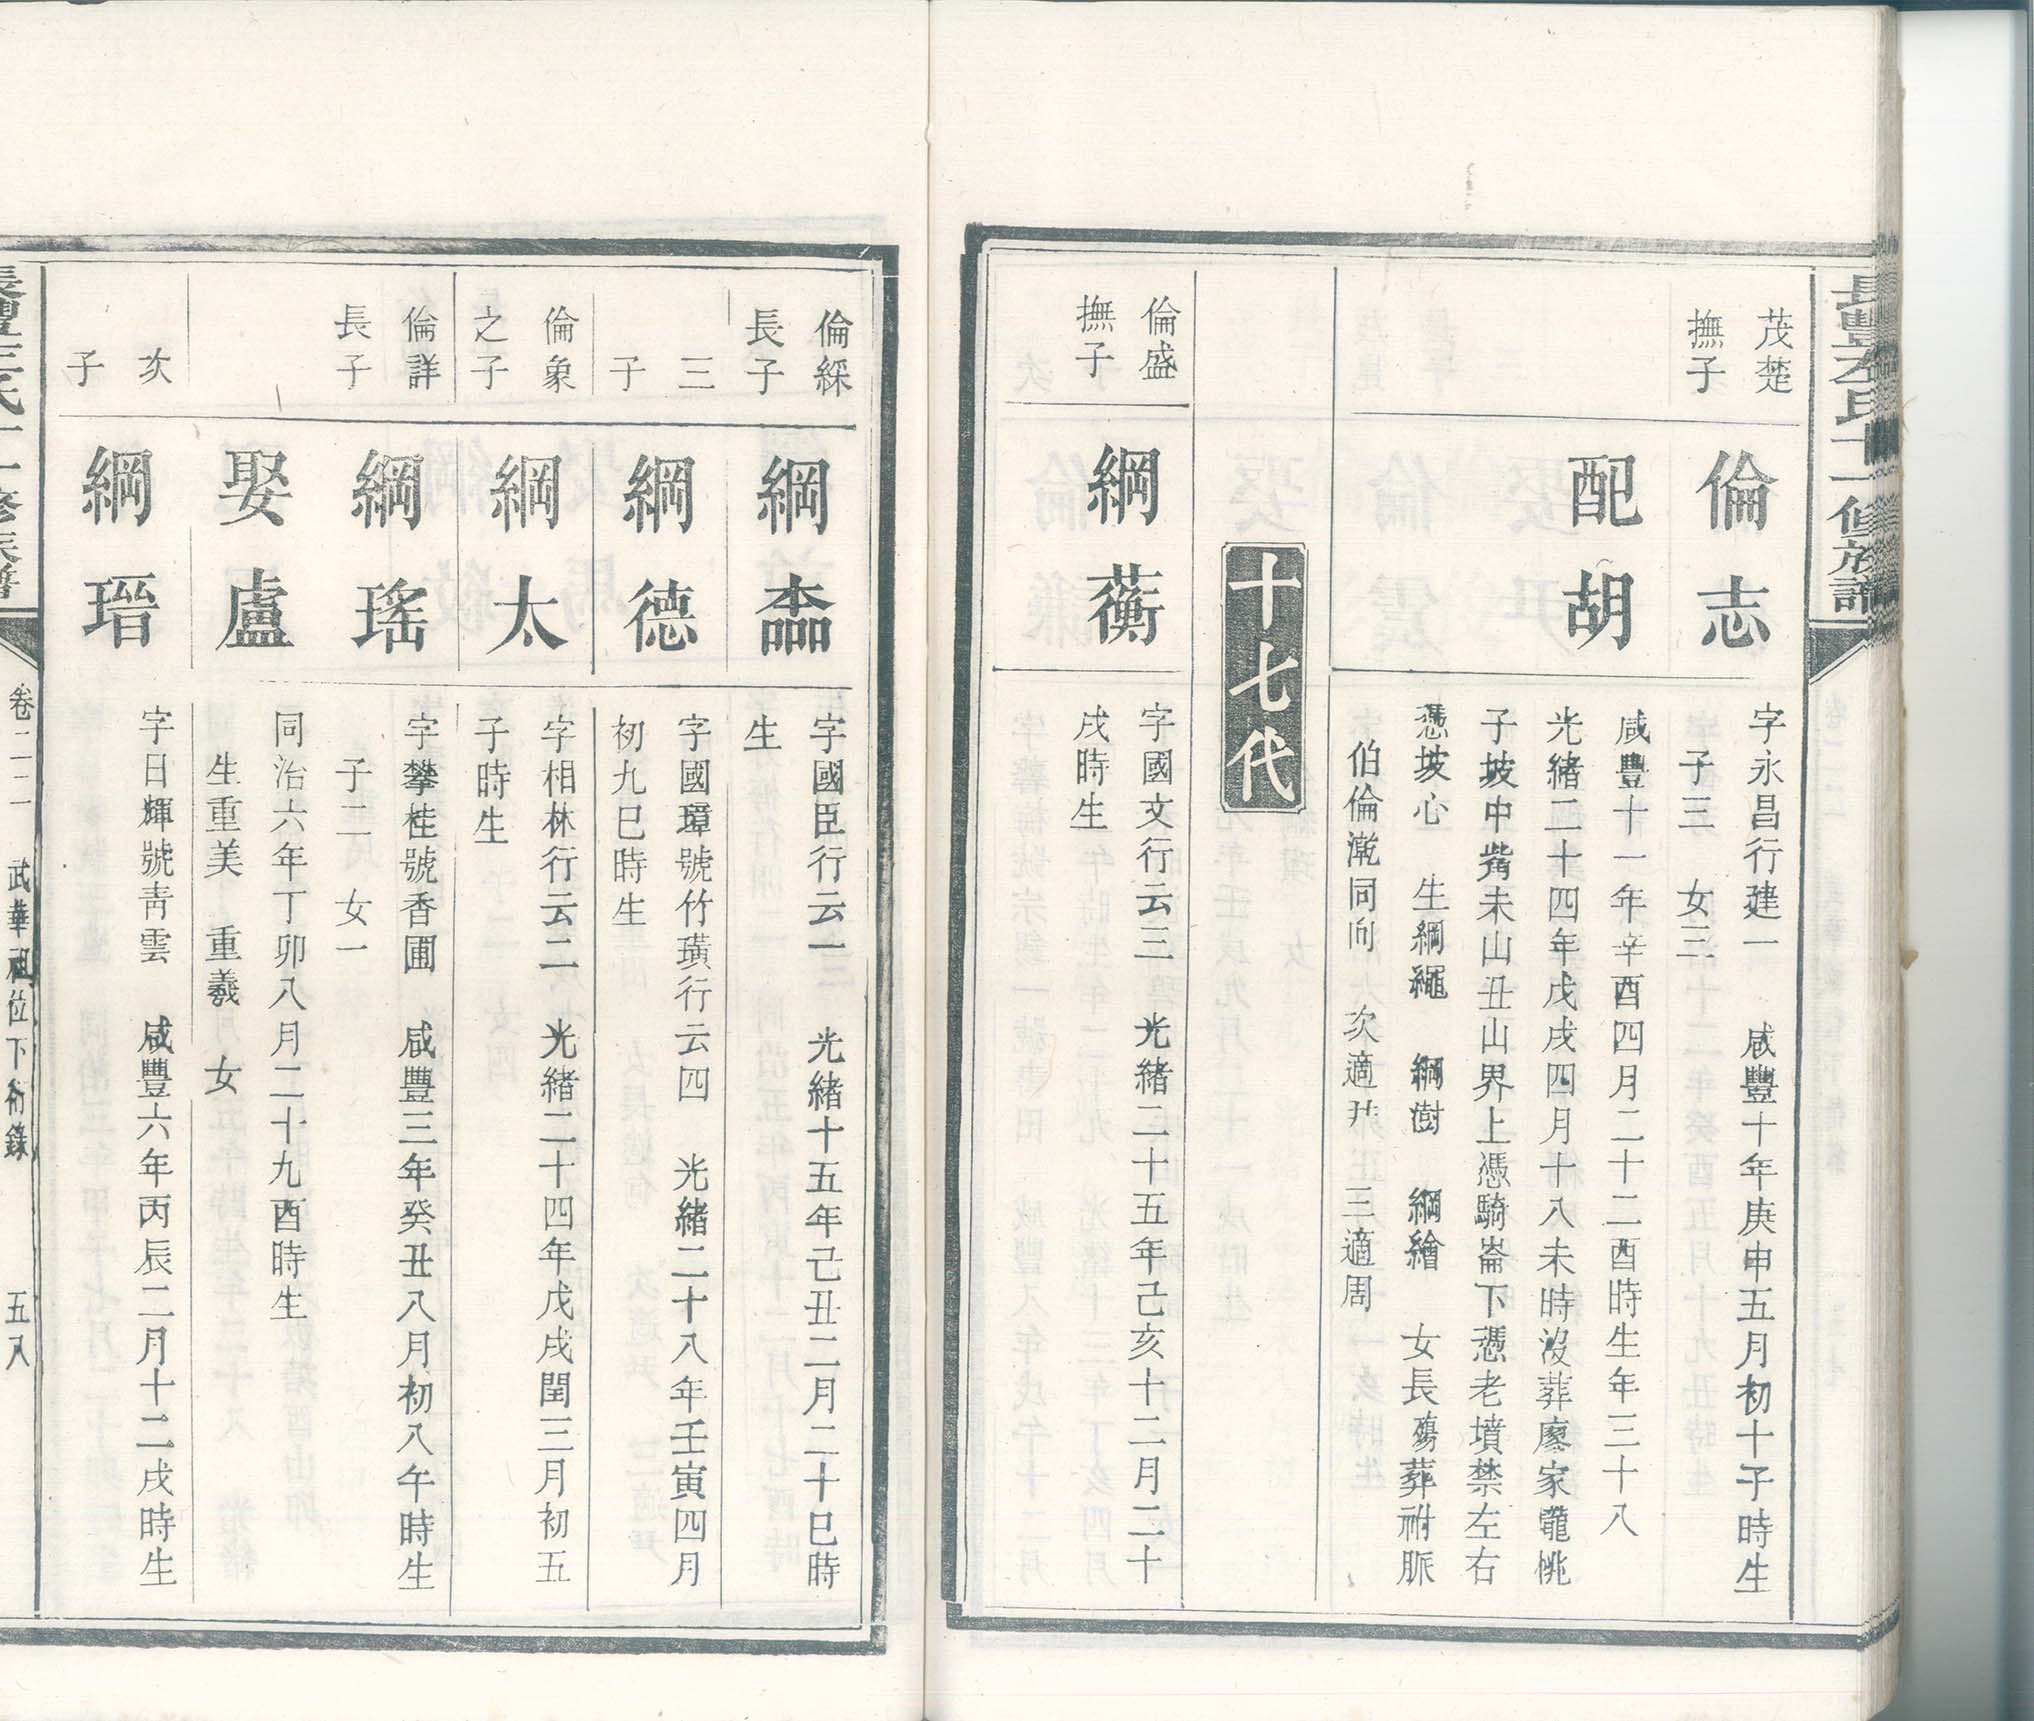 茂楚
撫子
倫志
字永昌行建一　咸豐十年庚申五月初十子時生
子三　女三
配胡
咸豐十一年辛酉四月二十二酉時生年三十八
光緒二十四年戊戌四月十八未時沒葬廖家龍桃
子坡中嘴未山丑山界上憑騎崙下憑老墳禁左右
憑坡心　生綱繩　綱澍　綱繪　女長殤葬祔脈
伯倫漖同向　次適　三適周
十七代
倫盛
撫子
綱蘅
字國文行云三　光緒二十五年己亥十二月二十
戌時生
倫綵
長子
綱
字國臣行云一　光緒十五年己丑二月二十巳時
生
三
子
綱德
字國璋號竹璜行云四　光緒二十八年壬寅四月
初九巳時生
倫象
之子
綱太
字相林行云二　光緒二十四年戊戌閏三月初五
子時生
倫詳
長子
綱瑤
字攀桂號香圃　咸豐三年癸丑八月初八午時生
子二　女一
娶盧
同治六年丁卯八月二十九酉時生
生重美　重羲　女
次
子
綱瑨
字日輝號青雲　咸豐六年丙辰二月十二戌時生
卷二二　武華祖位下衍錄　五八